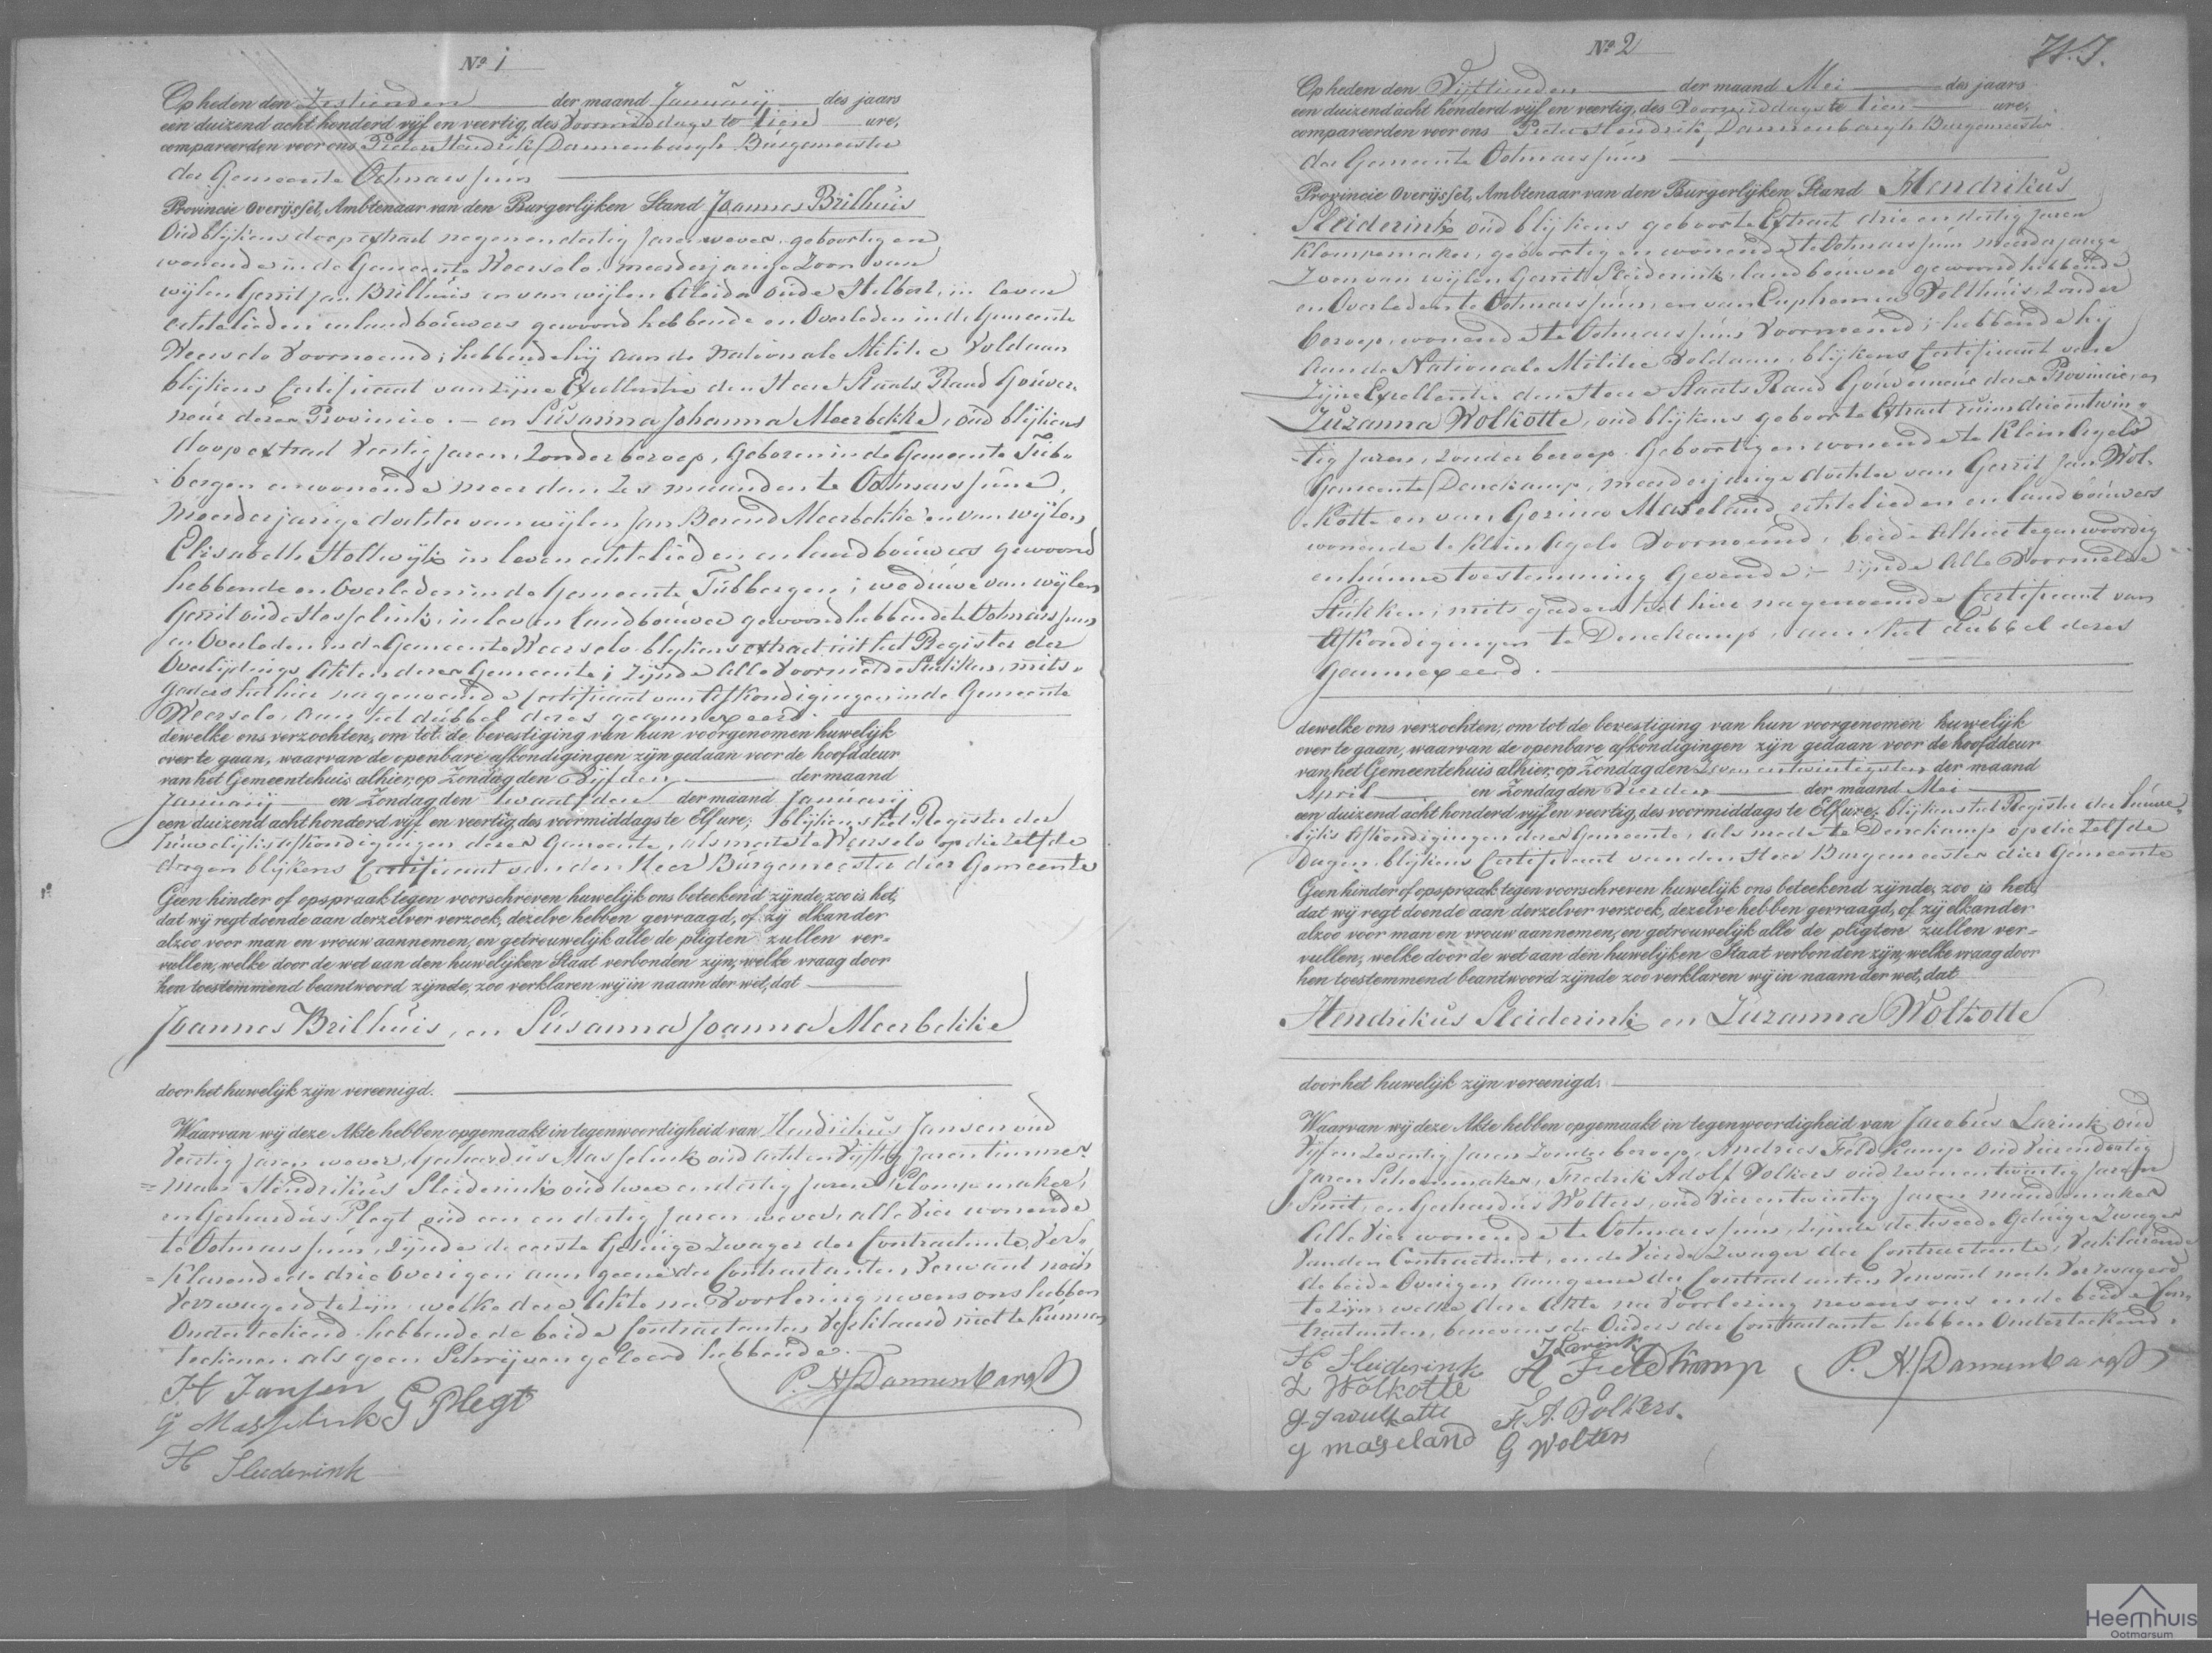 Nº 1
Op heden den Zestienden der maand Januarij des jaars
een duizend acht honderd vijf en veertig, des Voormiddags te tien ure,
compareerden voor ons Pieter Hendrik Dannenbargh Burgemeester
der Gemeente Ootmarssum
Provincie Overijssel, Ambtenaar van den Burgerlijken Stand Joannes Brilhuis
Oud blijkens doopextract negenendertig Jaren wever geboortig en
wonende in de Gemeente Weerselo meerderjarige Zoon van
wijlen Gerrit Jan Brilhuis en van wijlen Aleida oude in leven
echtelieden en landbouwers gewoond hebbende en Overleden in de Gemeente
Weerselo Voornoemd; hebbende hij aan de Nationale Militie Voldaan
blijkens Certificaat van Zijne Excellentie den Heer Staats Raad Gouver-
neur dezer Provincie. — en Susanna Johanna Meerbekke, oud blijkens
doopextract Veertig Jaren, Zonder beroep, Geboren in de Gemeente Tub-
bergen en wonende meer dan Zes maanden te Ootmarssum,
Meerderjarige dochter van wijlen Jan Berend Meerbekke en van wijlen
Elisabeth Holtwijk in leven echtelieden en landbouwers gewoond
hebbende en Overleden in de Gemeente Tubbergen; weduwe van wijlen
Gerrit oude Hesselink, in leven landbouwer gewoond hebbende te Ootmarssum
en Overleden in de Gemeente Weerselo blijkens extract uit het Register der
Overlijdings Akten dezer Gemeente; zijnde alle Voormelde Stukken, mits-
gaders het hier nagenoemde certificaat van Afkondigingen in de Gemeente
Weerselo, aan het dubbel dezes geannexeerd.
dewelke ons verzochten, om tot de bevestiging van hun voorgenomen huwelijk
over te gaan, waarvan de openbare afkondigingen zijn gedaan voor de hoofddeur
van het Gemeentehuis alhier, op Zondag den Vijfden der maand
Januarij en Zondag den twaalfden der maand Januarij
een duizend acht honderd vijf en veertig, des voormiddags te Elf ure; blijkens het Register der
huwelijks Afkondigingen dezer Gemeente, als mede te Weerselo op die Zelfde
dagen blijkens Certificaat van den Heer Burgemeester dier Gemeente
Geen hinder of opspraak tegen voorschreven huwelijk ons beteekend zijnde, zoo is het,
dat wij regt doende aan derzelver verzoek, dezelve hebben gevraagd, of zij elkander
alzoo voor man en vrouw aannemen, en getrouwelijk alle de pligten zullen ver-
vullen, welke door de wet aan den huwelijken Staat verbonden zijn, welke vraag door
hen toestemmend beantwoord zijnde, zoo verklaren wij in naam der wet, dat
Joannes Brilhuis, en Susanna Joanna Meerbekke
door het huwelijk zijn vereenigd.
Waarvan wij deze Akte hebben opgemaakt in tegenwoordigheid van Hendrikus Jansen oud
Veertig Jaren wever, Gerhardus Masselink oud acht en Vijftig Jaren timmer-
man Hendrikus Sleiderink oud twee en dertig Jaren Klompemaker,
en Gerhardus Plegt oud een en dertig Jaren wever, alle Vier wonende
te Ootmarssum, zijnde de eerste Getuige Zwager der Contractante, Ver-
klarende de drie Overigen aan geene der Contractanten Verwant noch
Verzwagerd te zijn welke deze Akte na Voorlezing nevens ons hebben
Onderteekend hebbende de beide Contractanten Verklaard niet te kunnen
teekenen als geen Schrijven geleerd hebbende.
H Jansen
G Masselink G Plegt
P. H. Dannenbargh
H Sleiderink
Nº 2
Op heden den Vijftienden der maand Mei des jaars
een duizend acht honderd vijf en veertig, des Voormiddags te tien ure,
compareerden voor ons Pieter Hendrik Dannenbargh Burgemeester
der Gemeente Ootmarssum
Provincie Overijssel, Ambtenaar van den Burgerlijken Stand Hendrikus
Sleiderink oud blijkens geboorte Extract drie en dertig Jaren
Klompemaker, geboortig en wonende te Ootmarssum meerderjarige
Zoon van wijlen Gerrit Sleiderink, landbouwer gewoond hebbende
en Overleden te Ootmarssum, en van Euphemia Velthuis, Zonder
beroep, wonende te Ootmarssum Voornoemd; hebbende hij
Aan de Nationale Militie Voldaan, blijkens Certificaat van
Zijne Excellentie den Heere Staats Raad Gouverneur dezer Provincie, en
Zuzanna Wolkotte, oud blijkens geboorte Extract ruim drieentwin-
tig Jaren, Zonder beroep Geboortig en wonende te Klein Agelo
Gemeente Denekamp, meerderjarige dochter van Gerrit Jan Wol-
kotte en van Gezina Maseland, echtelieden en landbouwers
wonende te Klein Agelo Voornoemd, beide Alhier tegenwoordig
en hunne toestemming Gevende; — zijnde Alle Voormelde
Stukken, mits gaders het hier nagenoemde Certificaat van
Afkondigingen te Denekamp, aan het dubbel dezes
Geannexeerd.
dewelke ons verzochten, om tot de bevestiging van hun voorgenomen huwelijk
over te gaan, waarvan de openbare afkondigingen zijn gedaan voor de hoofddeur
van het Gemeentehuis alhier, op Zondag den Zevenentwintigsten der maand
April en Zondag den Vierden der maand Mei
een duizend acht honderd vijf en veertig, des voormiddags te Elf ure, blijkens het Register der huwe-
lijks Afkondigingen dezer Gemeente, als mede te Denekamp op die Zelfde
Dagen, blijkens Certificaat van den Heer Burgemeester dier Gemeente
Geen hinder of opspraak tegen voorschreven huwelijk ons beteekend zijnde, zoo is het,
dat wij regt doende aan derzelver verzoek, dezelve hebben gevraagd, of zij elkander
alzoo voor man en vrouw aannemen, en getrouwelijk alle de pligten zullen ver-
vullen, welke door de wet aan den huwelijken Staat verbonden zijn, welke vraag door
hen toestemmend beantwoord zijnde zoo verklaren wij in naam der wet, dat
Hendrikus Sleiderink en Zuzanna Wolkotte
door het huwelijk zijn vereenigd.
Waarvan wij deze Akte hebben opgemaakt in tegenwoordigheid van Jacobus Larink oud
Vijf en Zeventig Jaren Zonder beroep, Andries Feldkamp Oud Vierendertig
Jaren Schoenmaker, Fredrik Adolf Volkers oud Zevenentwintig Jaren
Smit, en Gerhardus Wolters, oud Vierentwintig Jaren mandemaker
Alle Vier wonende te Ootmarssum, zijnde de tweede Getuige Zwager
Van den Contractant, en de Vierde Zwager der Contractante, Verklarende
de beide Overigen, aan geene der Contractanten Verwant noch Verzwagerd
te zijn; welke deze Akte na Voorlezing nevens ons en de beide Con-
tractanten, benevens de Ouders der Contractante hebben Onderteekend.
H Sleiderink
J Larink
Z Wolkotte
A Feldkamp
P. H. Dannenbargh
F. A. Volkers.
G maseland G Wolters
Heemhuis
Ootmarsum